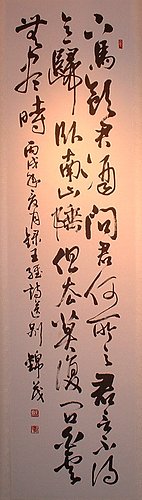 下馬飲君酒問君何所之君言不得
意歸臥南山陲但去莫復問白雲
無盡時丙戌年夏月錄王維詩送別錦茂